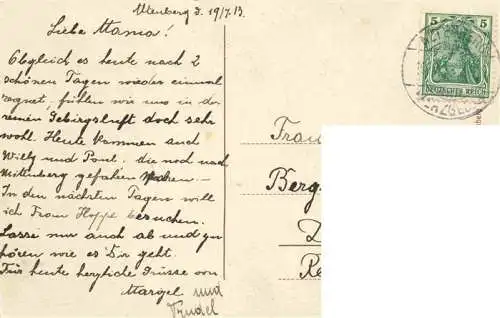 Altenberg d. 19/7.13.
Liebe Mama!
Obgleich es heute nach 2
schönen Tagen wieder einmal
regnet, fühlen wir uns in der
reinen Gebirgsluft doch sehr
wohl. Heute kammen auch
Willy und Paul, die noch nach
Mittenberg gefahren waren –
In den nächsten Tagen will
ich Frau Hoppe besuchen.
Lasse nur auch ab und zu
hören wie es Dir geht.
Für heute herzliche Grüsse von
Margel und
Trudel
5 5
DEUTSCHES REICH
Frau
Berg